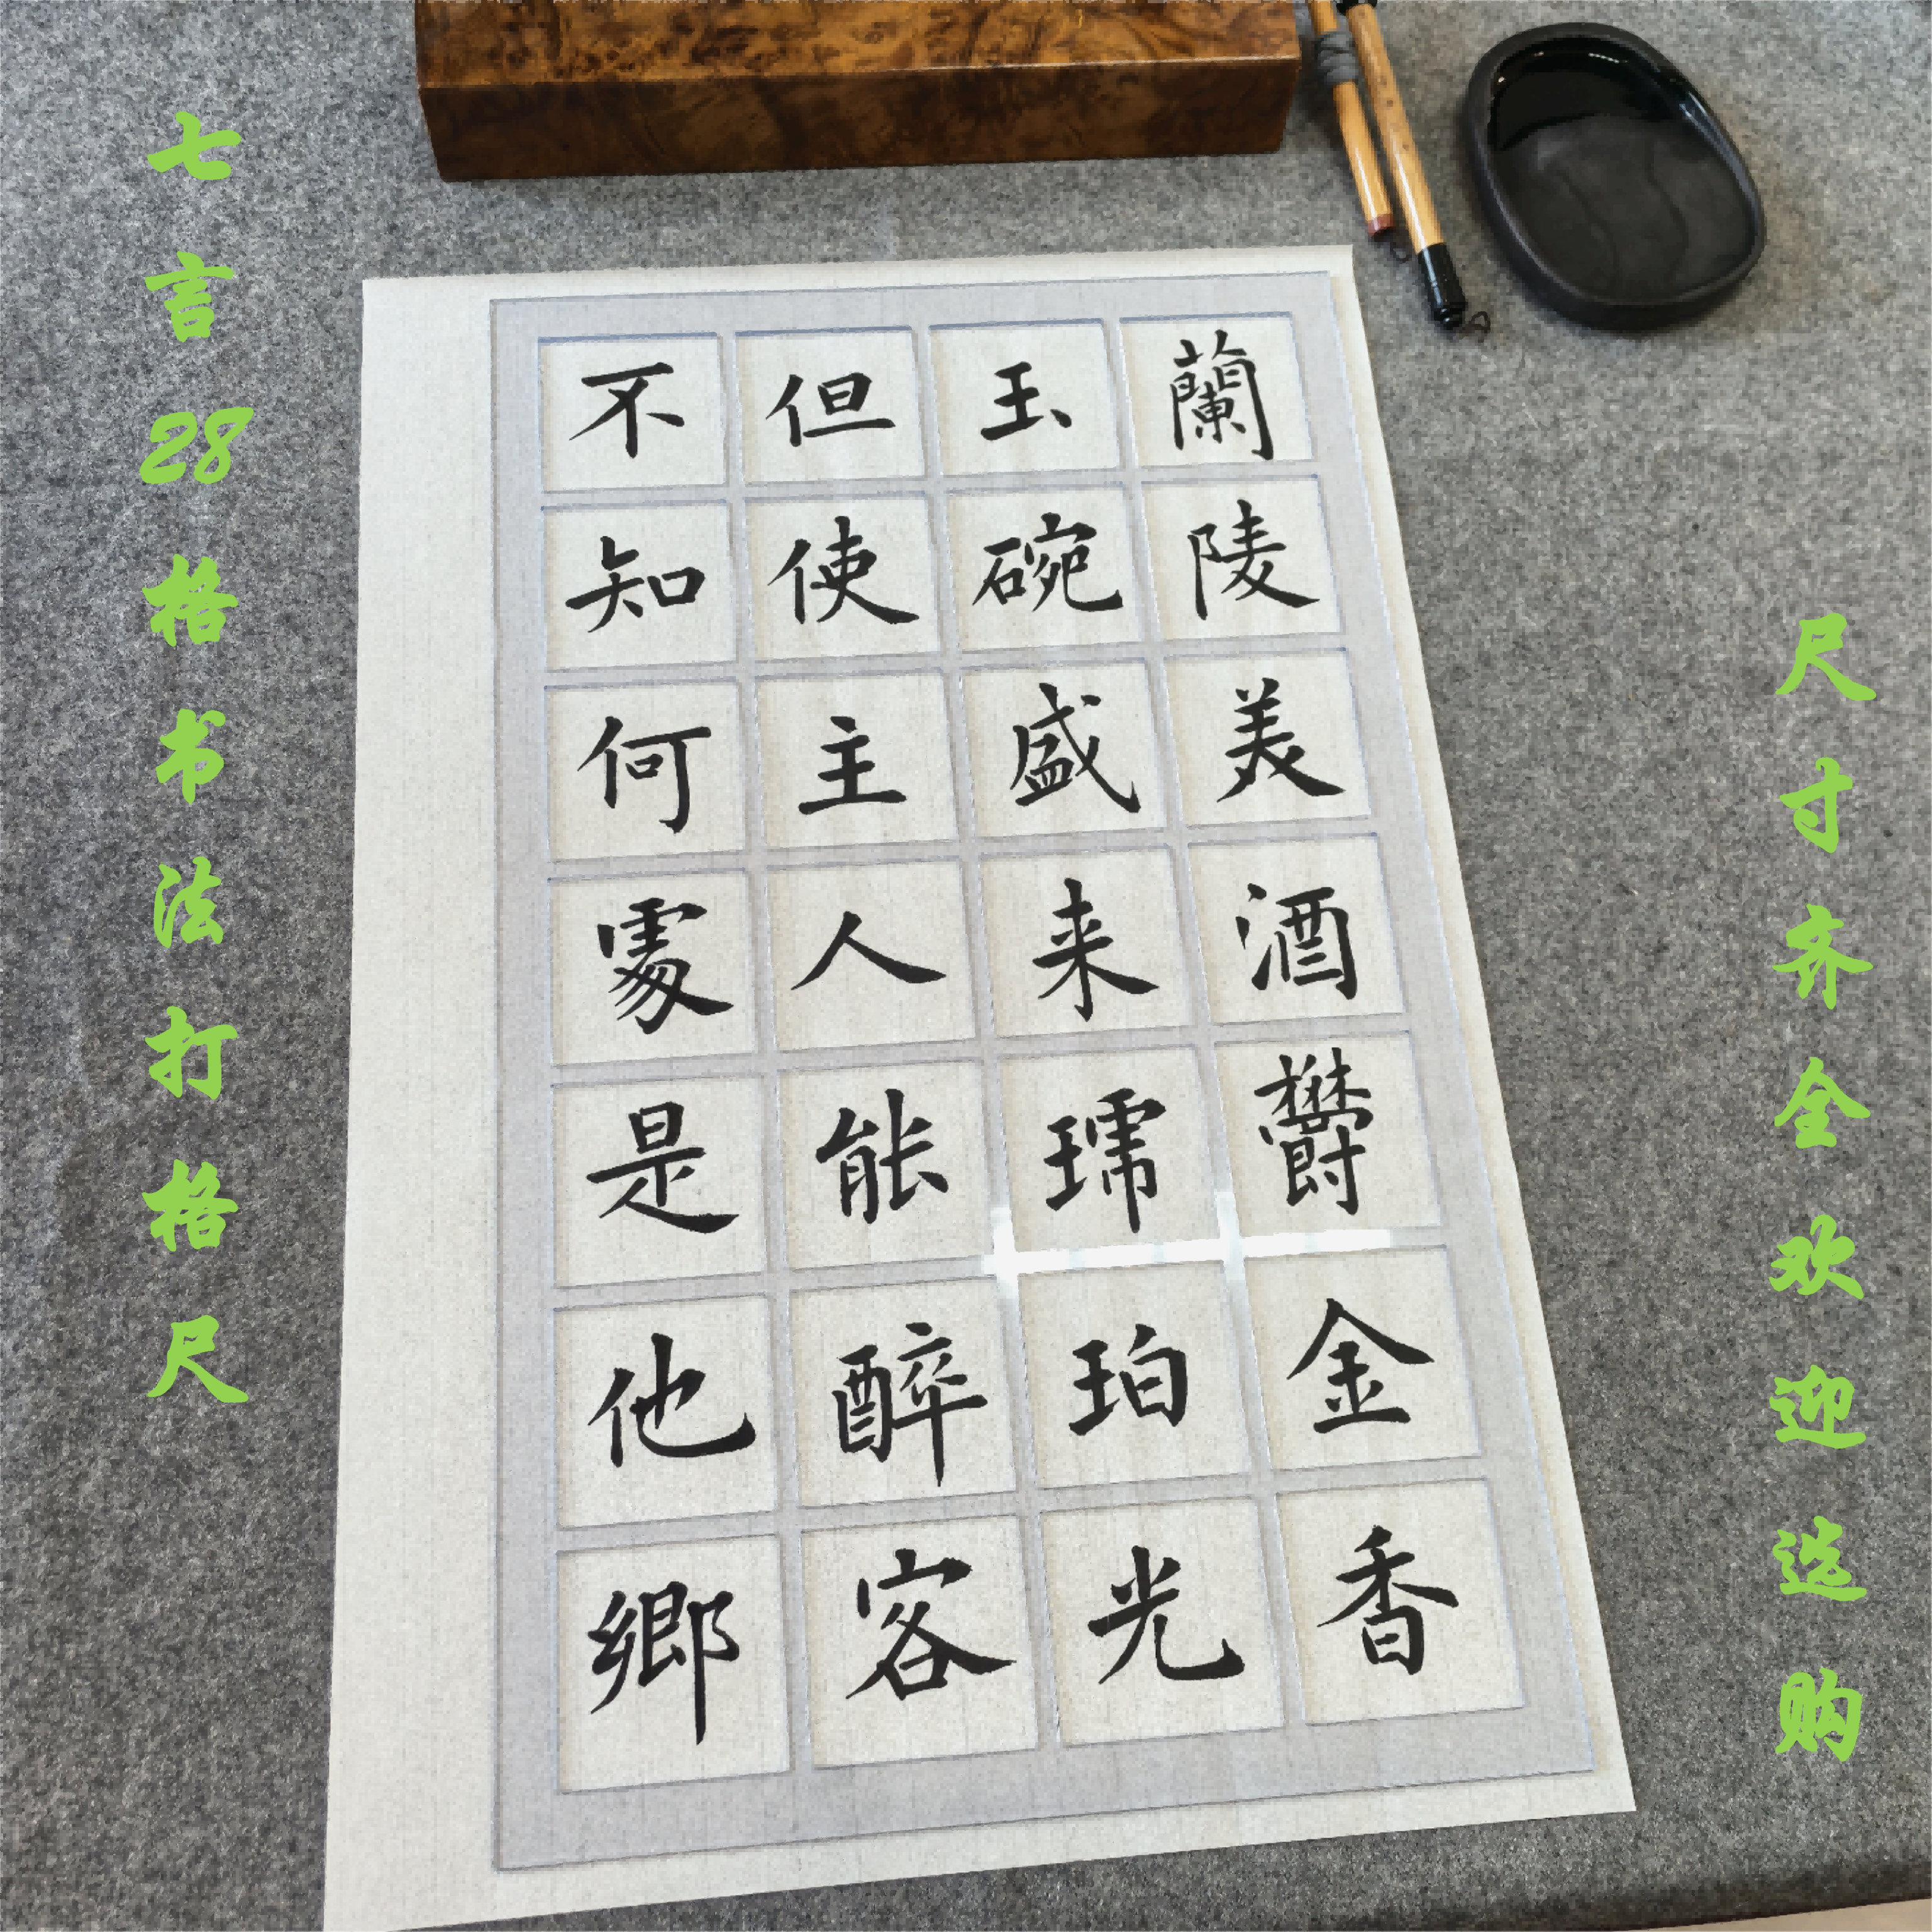 七言28格书法打格尺
蘭陵美酒欝金香
玉碗盛来琥珀光
但使主人能醉客
不知何處是他鄉
尺寸齐全欢迎选购